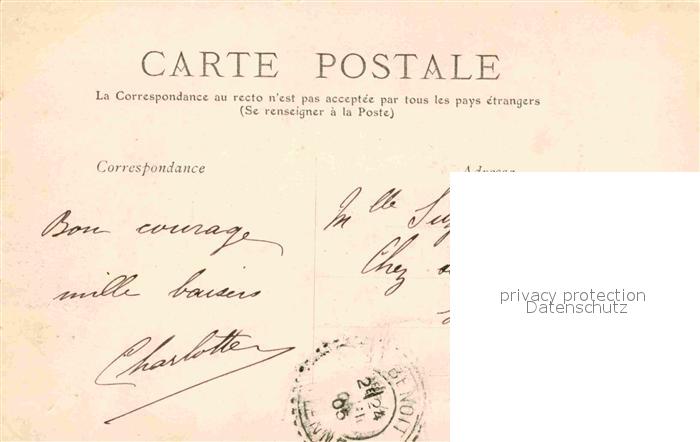 CARTE POSTALE
La Correspondance au recto n'est pas acceptée par tous les pays étrangers
(Se renseigner à la Poste)
Correspondance
Adresse
Bon courage
mille baisers
Charlotte
Mlle
Chez
privacy protection
Datenschutz
BENOIT
24
05